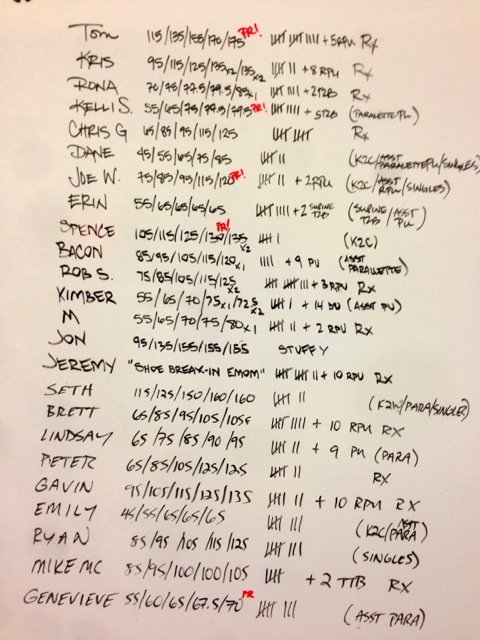 Tom 115/135/155/170/175 PR! 卌 卌 IIII + 5 RPU Rx
KRIS 95/115/125/135x2/135x2 卌 II + 8 RPU Rx
RONA 70/75/77.5/79.5/85x1 卌 IIII + 2T2B Rx
KELLI S. 55/65/75/77.5/79.5 PR! 卌 IIII + 5T2B (PARALETTE PU)
CHRIS G 65/85/95/115/125 卌 卌 Rx
DANE 45/55/65/75/85 卌 II (K2C/ASST PARALETTE PU/SINGLES)
JOE W. 75/85/95/115/120 PR! 卌 II + 2 RPU (K2C/ASST RPU/SINGLES)
ERIN 55/65/65/65/65 卌 IIII + 2 SUPINE T2B (SUPINE T2B/ASST PU)
SPENCE 105/115/125/130/135x2 PR! 卌 I (K2C)
BACON 85/95/105/115/120x1 IIII + 9 PU (ASST PARALETTE)
ROB S. 75/85/105/115/125x2 卌 卌 III + 3 RPU Rx
KIMBER 55/65/70/75x1/72.5x2 卌 I + 14 DU (ASST PU)
M 55/65/70/75/80x1 卌 II + 2 RPU Rx
JON 95/135/155/155/155 STUFFY
JEREMY "SHOE BREAK-IN EMOM" 卌 卌 II + 10 RPU Rx
SETH 115/125/150/160/160 卌 II (K2C/PARA/SINGLES)
BRETT 65/85/95/105/105F 卌 IIII + 10 RPU RX
LINDSAY 65/75/85/90/95 卌 II + 9 PU (PARA)
PETER 65/85/105/125/125 卌 II RX
GAVIN 95/105/115/125/135 卌 II + 10 RPU RX
EMILY 45/55/65/65/65 卌 III (K2C/ASST PARA)
RYAN 85/95/105/115/125 卌 III (SINGLES)
MIKE MC 85/95/100/100/105 卌 + 2 TTB RX
GENEVIEVE 55/60/65/67.5/70 PR 卌 III (ASST PARA)